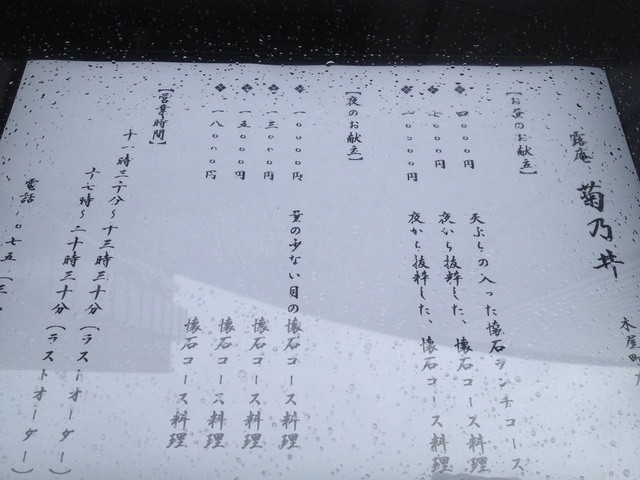 木屋町
露庵 菊乃井
【お昼のお献立】
❖ 四〇〇〇円 天ぷらの入った懐石ランチコース
❖ 七〇〇〇円 夜から抜粋した、懐石コース料理
❖ 一〇〇〇〇円 夜から抜粋した、懐石コース料理
【夜のお献立】
❖ 一〇〇〇〇円 量の少ない目の懐石コース料理
❖ 一三〇〇〇円 懐石コース料理
❖ 一五〇〇〇円 懐石コース料理
❖ 一八〇〇〇円 懐石コース料理
【営業時間】
十一時三十分〜十三時三十分（ラストオーダー）
十七時〜二十時三十分（ラストオーダー）
電話 〇七五（三